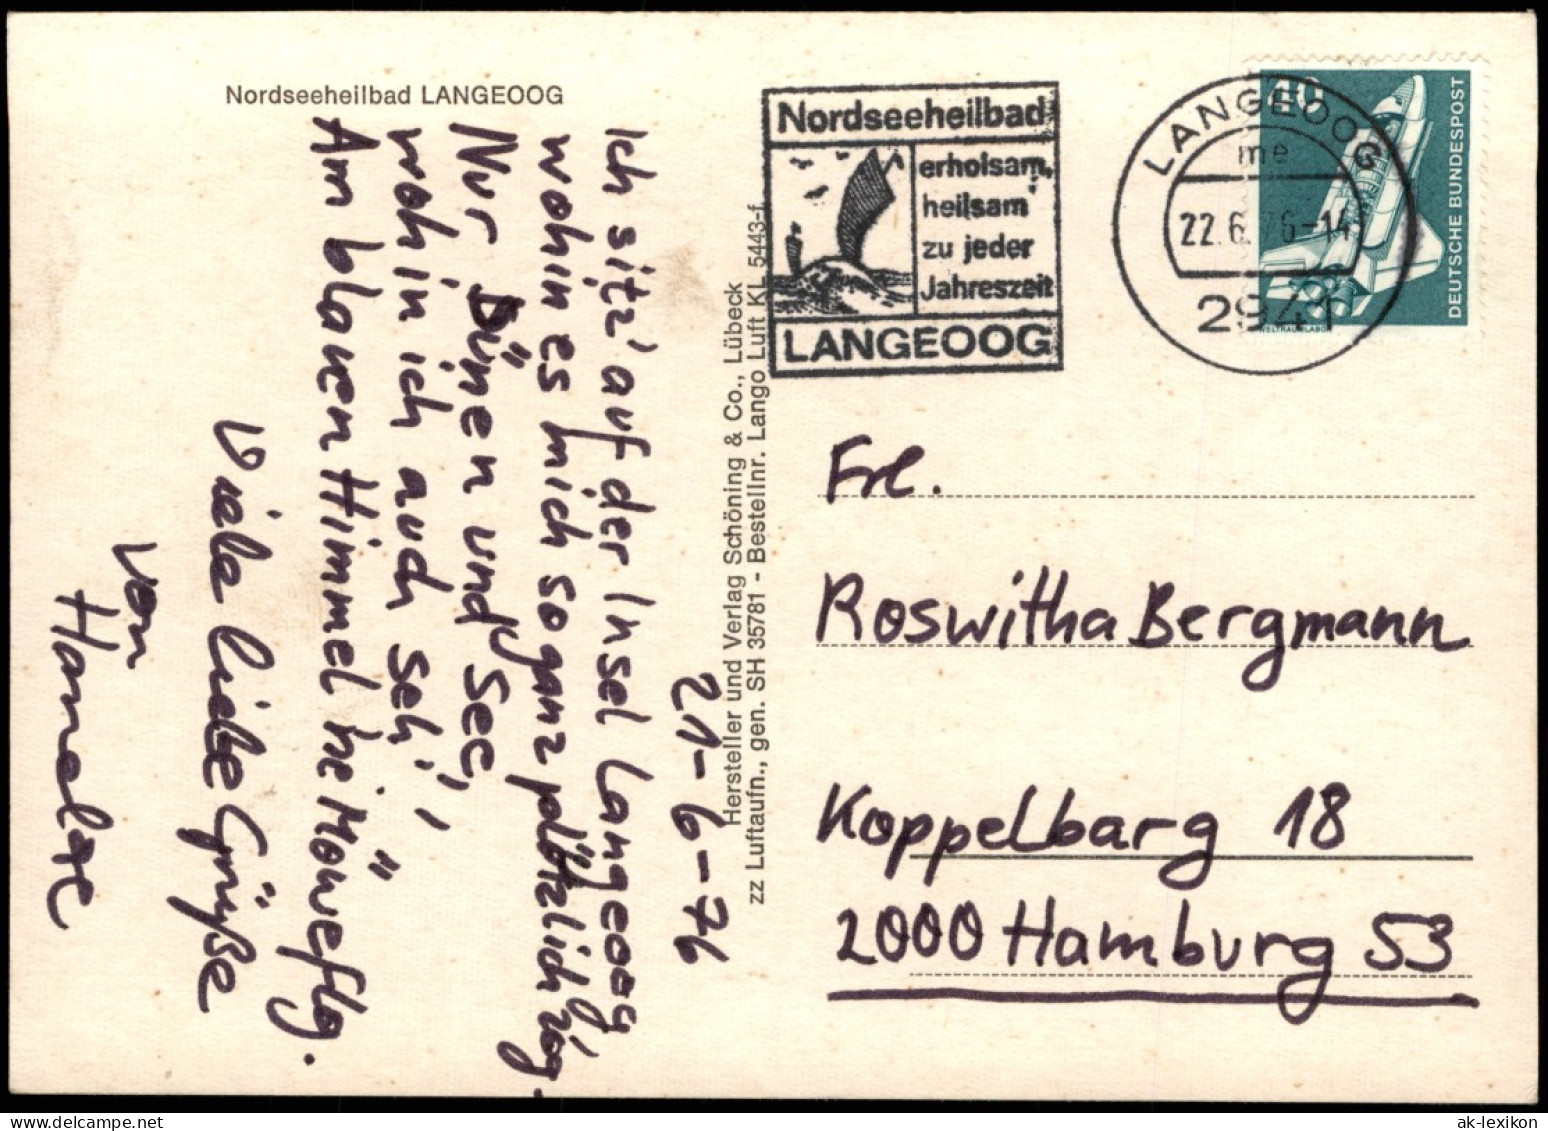 Nordseeheilbad LANGEOOG
21-6-76
Ich sitz' auf der Insel Langeoog,
wohin es mich so ganz plötzlich zog.
Nur Dünen und See,
wohin ich auch seh',
Am blauen Himmel 'ne Möwe flog.
Viele liebe Grüße
von
Hersteller und Verlag Schöning & Co., Lübeck
zz Luftaufn., gen. SH 35781 - Bestellnr. Lango Luft KL 5443-f
Nordseeheilbad
erholsam,
heilsam
zu jeder
Jahreszeit
LANGEOOG
LANGEOOG
me
22.6.76-14
2941
40
DEUTSCHE BUNDESPOST
WELTRAUMLABOR
Frl.
Roswitha Bergmann
Koppelbarg 18
2000 Hamburg 53
ak-lexikon